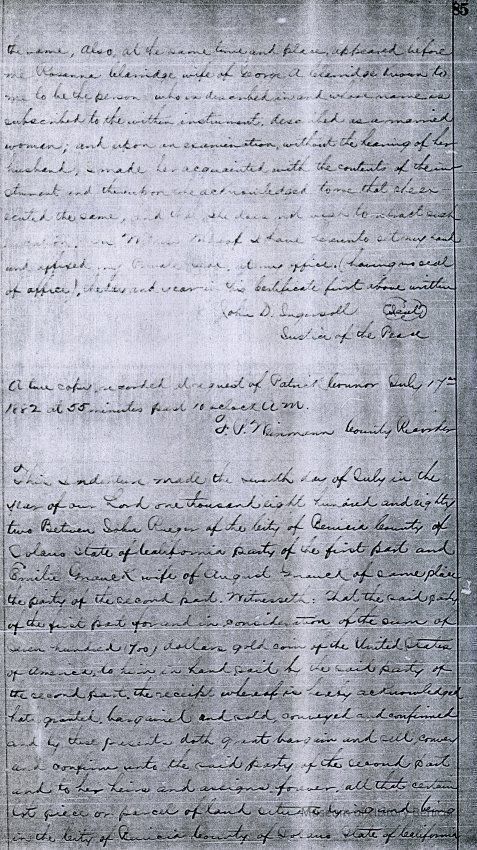 85
the same, Also, at the same time and place, appeared before
me Rosanna Claridge wife of George A Claridge known to
me to be the person who is described in and whose name is
subscribed to the within instrument, described as a married
woman; and upon an examination, without the hearing of her
husband, I made her acquainted with the contents of the in
strument and thereupon she acknowledged to me that she ex
ecuted the same, and that she does not wish to retract such
execution. In Witness Whereof I have hereunto set my hand
and affixed my Private Seal, at my office, (having no seal
of office), the day and year in this certificate first above written
John D. Ingersoll (Seal)
Justice of the Peace
A true copy, recorded at request of Patrick Connor July 17th
1882 at 55 minutes past 10 oclock A.M.
County Recorder
This Indenture made the seventh day of July in the
year of our Lord one thousand eight hundred and eighty
two Between John Rueger of the City of Benicia County of
Solano State of California party of the first part and
Emilie Grauck wife of August Grauck of same place
the party of the second part. Witnesseth: That the said party
of the first part for and in consideration of the sum of
seven hundred (700) dollars gold coin of the United States
of America, to him in hand paid by the said party of
the second part, the receipt whereof is hereby acknowledged
hath granted, bargained and sold, conveyed and confirmed
and by these presents doth grant bargain and sell, convey
and confirm unto the said party of the second part
and to her heirs and assigns forever, all that certain
lot piece or parcel of land situate lying and being
in the City of Benicia County of Solano State of California